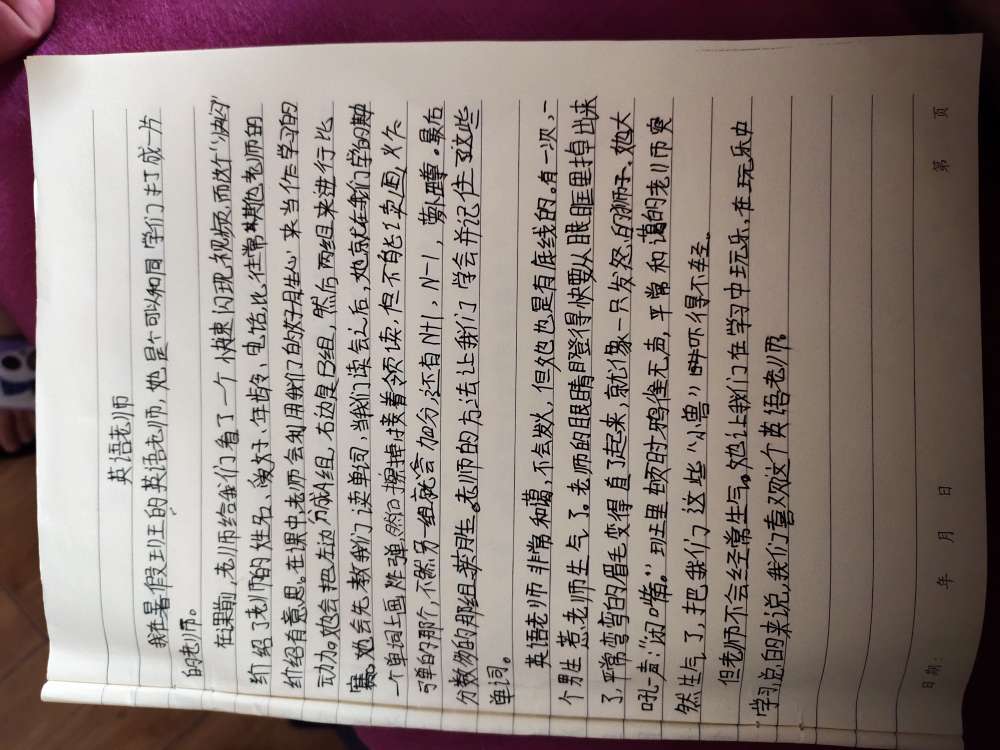 英语老师
我在暑假班王的英语老师，她是个可以和同学们打成一片
的老师。
在课前，老师给我们看了一个快速闪现视频，而这个"快闪"
介绍了老师的姓名、爱好、年龄、电话，比往常其他老师的
介绍有意思。在课中，老师会利用我们的好胜心来当作学习的
动力。她会把左边分成A组，右边是B组，然后两组来进行比
赛。她会先教我们读单词，当我们读会之后，她就在我们学的
一个单词上画炸弹，然后擦掉接着领读，但不能读画火
弹的那个，不然另一组就会加分，还有N+1，N-1，萝卜蹲。最后
分数多的那组获胜。老师的方法让我们学会并记住了这些
单词。
英语老师非常和蔼，不会发火，但她也是有底线的。有一次，一
个男生惹老师生气了。老师的眼睛瞪得快要从眼眶里掉出来
了，平常弯弯的眉毛变得直了起来，就像一只发怒的狮子。她大
吼一声："闭嘴。"班里顿时鸦雀无声，平常和蔼的老师突
然生气了，把我们这些"小兽"吓得不轻。
但老师不会经常生气。她让我们在学习中玩乐，在玩乐中
学习总的来说，我们喜欢这个英语老师。
日期： 年 月 日 第 页